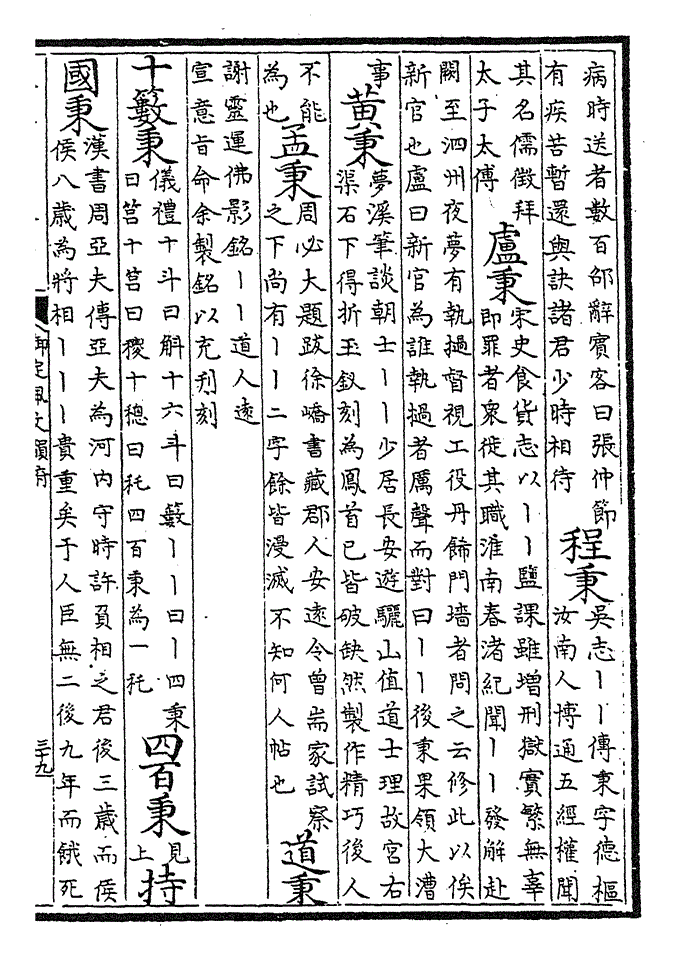 病時送者數百邠辭賓客曰張仲節
有疾苦暫還與訣諸君少時相待
程秉
吳志丨丨傳秉字德樞
汝南人博通五經權聞
其名儒徵拜
太子太傅
盧秉
宋史食貨志以丨丨鹽課雖增刑獄實繁無辜
即罪者衆徙其職淮南春渚紀聞丨丨發解赴
闕至泗州夜夢有執撾督視工役丹飾門墻者問之云修此以俟
新官也盧曰新官為誰執撾者厲聲而對曰丨丨後秉果領大漕
事
黃秉
夢溪筆談朝士丨丨少居長安遊驪山值道士理故宮右
渠石下得折玉釵刻為鳳首已皆破缺然製作精巧後人
不能
為也
孟秉
周必大題跋徐嶠書藏郡人安遠令曾耑家試察
之下尚有丨丨二字餘皆漫滅不知何人帖也
道秉
謝靈運佛影銘丨丨道人遠
宣意旨命余製銘以充刋刻
十籔秉
儀禮十斗曰斛十六斗曰籔丨丨曰丨四秉
曰筥十筥曰稯十稯曰秅四百秉為一秅
四百秉
見
上
持
國秉
漢書周亞夫傳亞夫為河内守時許負相之君後三歲而侯
侯八歲為將相丨丨丨貴重矣于人臣無二後九年而餓死
御定佩文韻府
三十九